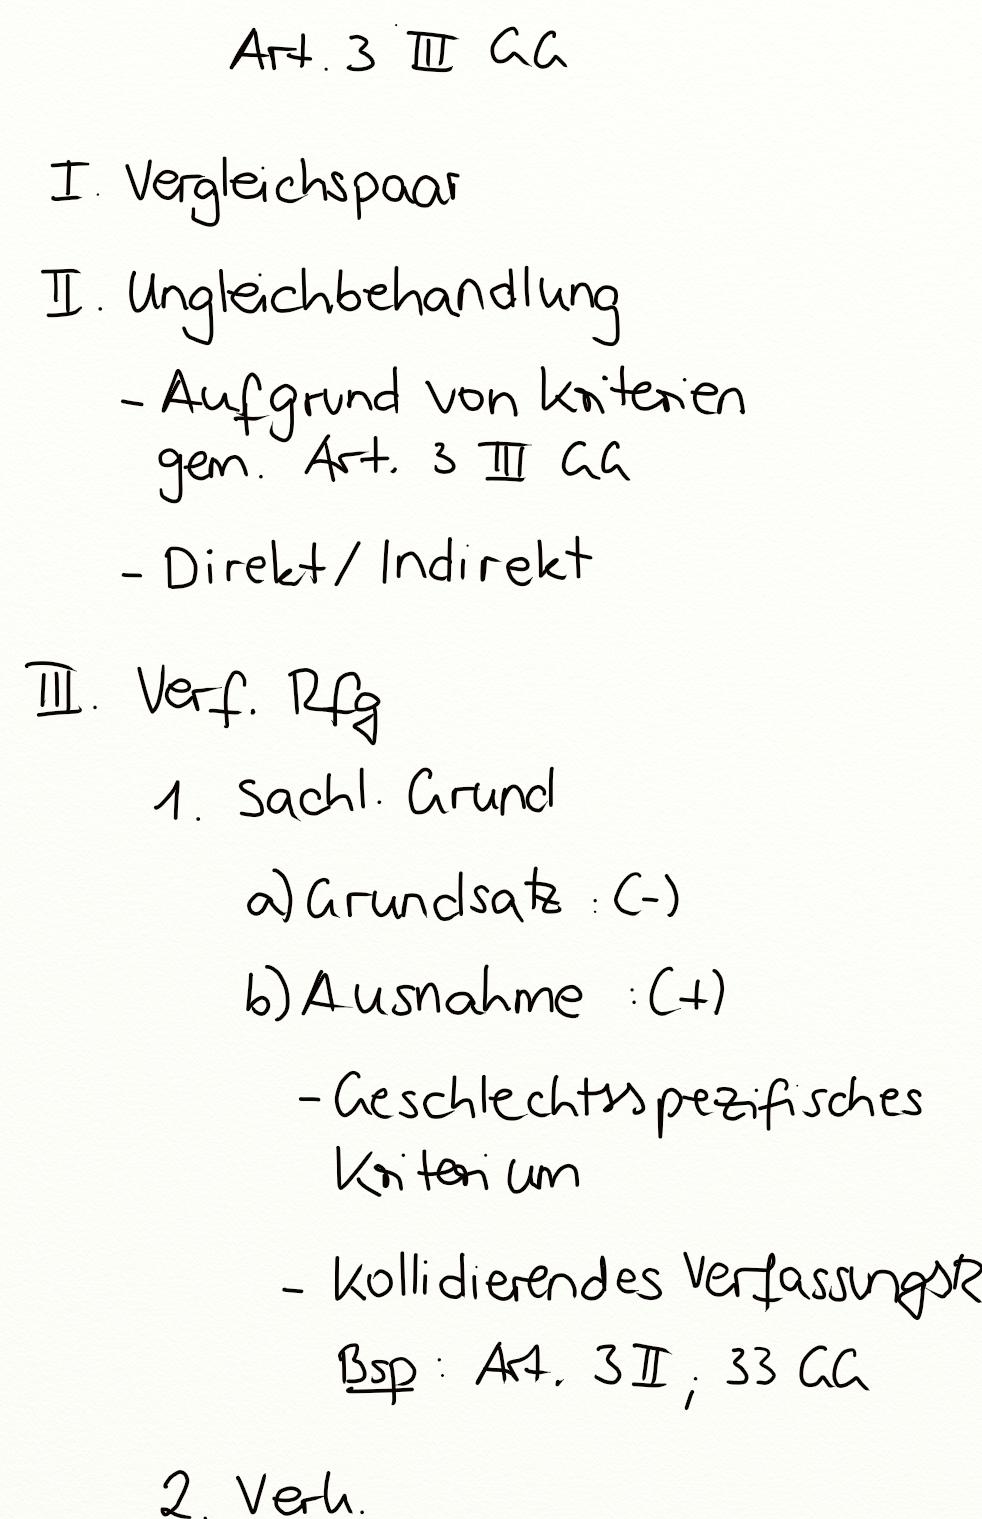 Art. 3 III GG
I. Vergleichspaar
II. Ungleichbehandlung
- Aufgrund von Kriterien
gem. Art. 3 III GG
- Direkt / Indirekt
III. Verf. Rfg
1. Sachl. Grund
a) Grundsatz : (-)
b) Ausnahme : (+)
- Geschlechtsspezifisches
Kriterium
- Kollidierendes VerfassungsR
Bsp : Art. 3 II ; 33 GG
2. Verh.